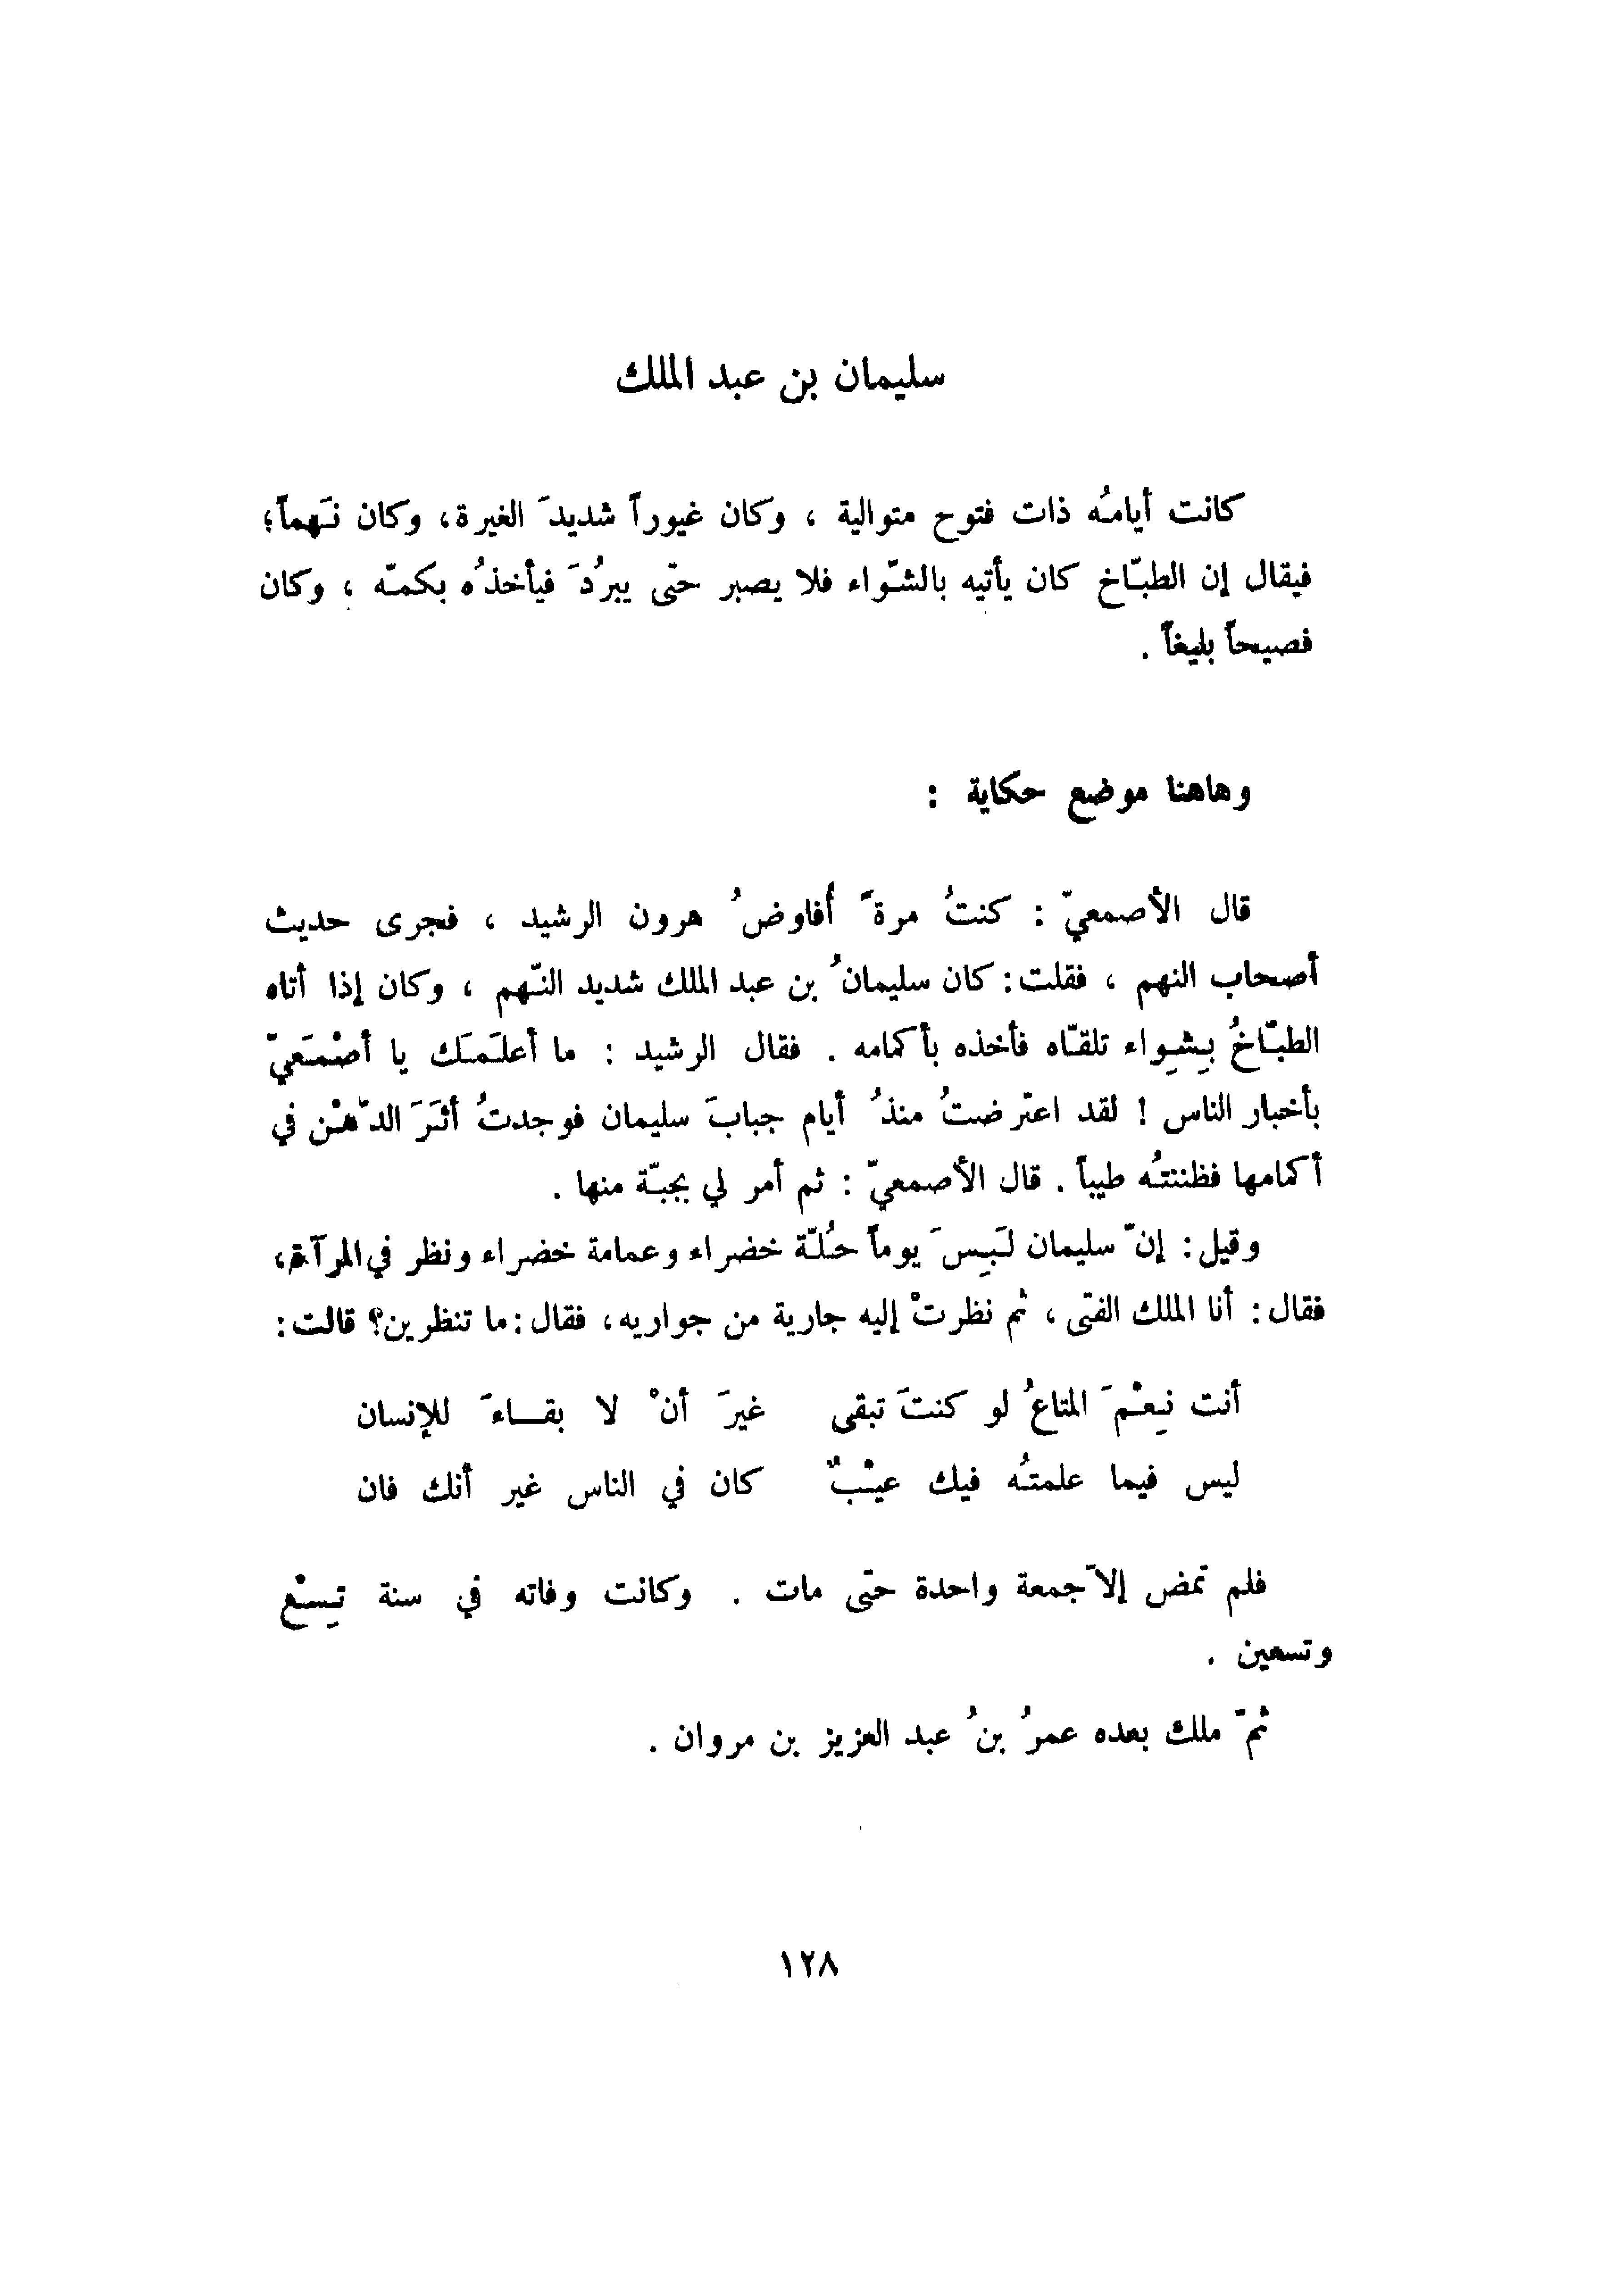 سليمان بن عبد الملك
كانت أيامُه ذات فتوح متوالية ، وكان غيوراً شديدَ الغيرة، وكان نَهماً؛
فيقال إن الطبّاخ كان يأتيه بالشّواء فلا يصبر حتى يبرُدَ فيأخذُه بكمّه ، وكان
فصيحاً بليغاً .
وهاهنا موضع حكاية :
قال الأصمعيّ : كنتُ مرةً أُفاوضُ هرون الرشيد ، فجرى حديث
أصحاب النهم ، فقلت: كان سليمانُ بن عبد الملك شديد النّهم ، وكان إذا أتاه
الطبّاخُ بِشِواء تلقّاه فأخذه بأكمامه . فقال الرشيد : ما أعلَمَك يا أصْمَعيّ
بأخبار الناس ! لقد اعترضتُ منذُ أيام جبابَ سليمان فوجدتُ أثَرَ الدّهْن في
أكمامها فظننتُه طيباً . قال الأصمعيّ : ثم أمر لي بجبّة منها .
وقيل: إنّ سليمان لَبِسَ يوماً حُلّة خضراء وعمامة خضراء ونظر في المرآة،
فقال: أنا الملك الفتى ، ثم نظرتْ إليه جارية من جواريه، فقال: ما تنظرين؟ قالت:
أنت نِعْمَ المتاعُ لو كنتَ تبقى غيرَ أنْ لا بقـاءَ للإنسان
ليس فيما علمتُه فيك عيْبٌ كان في الناس غير أنك فان
فلم تمض إلاّ جمعة واحدة حتى مات . وكانت وفاته في سنة تِسْع
وتسعين .
ثمّ ملك بعده عمرُ بنُ عبد العزيز بن مروان .
١٢٨